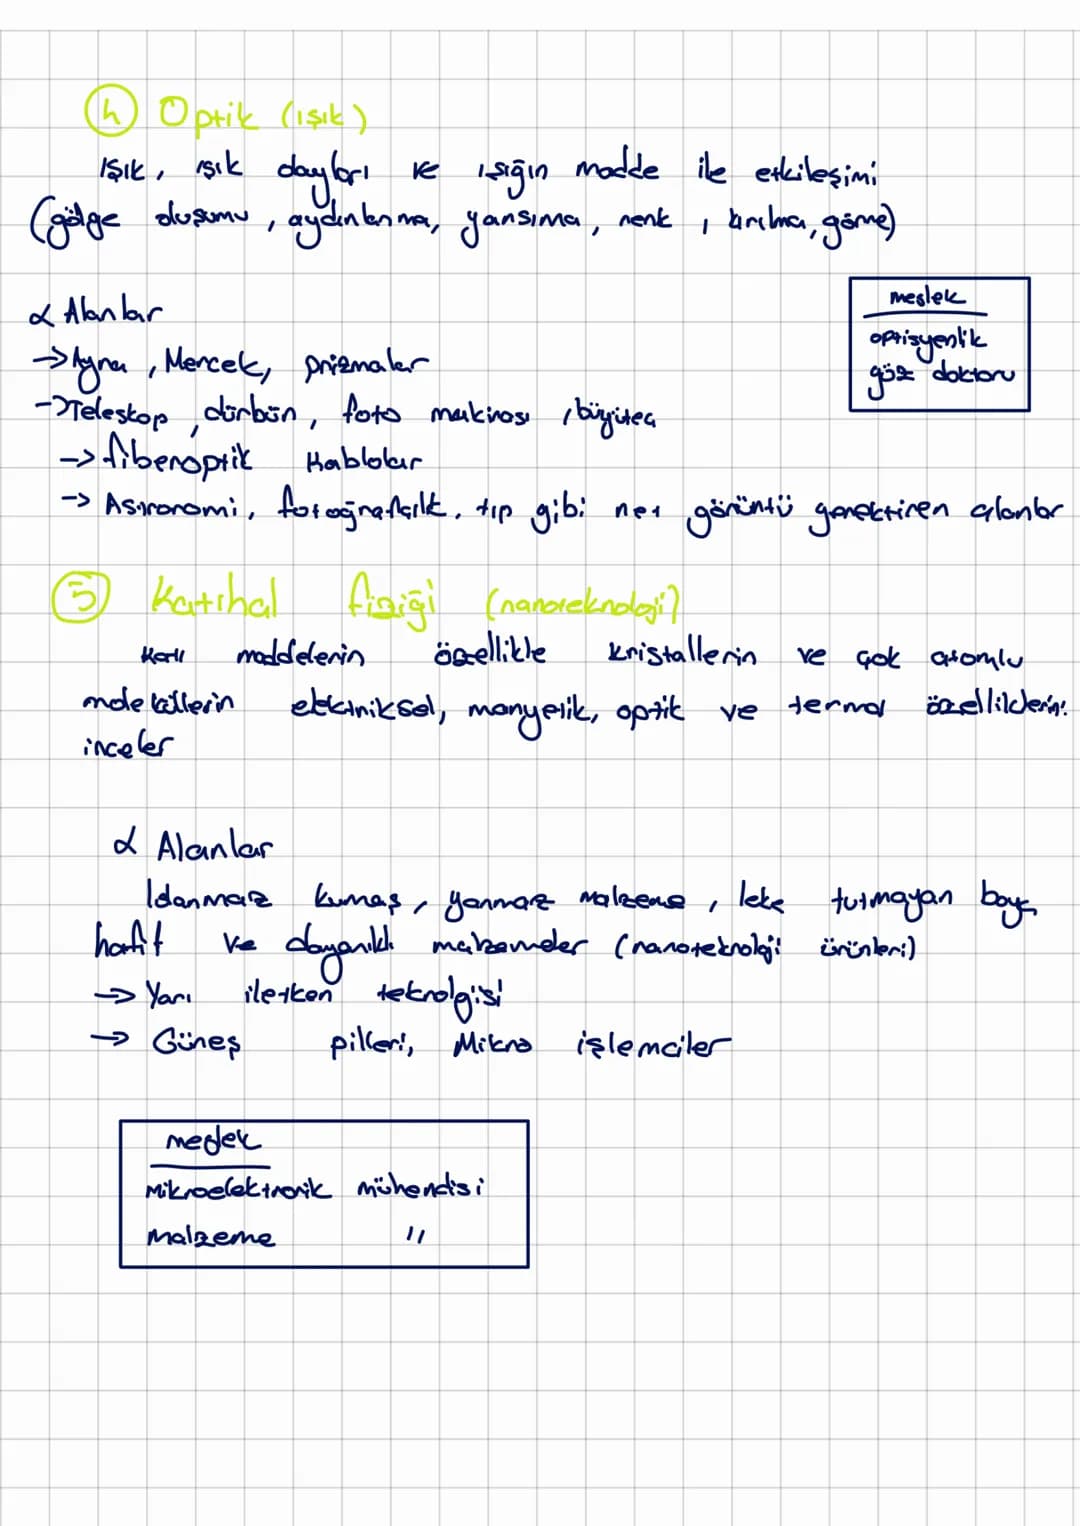 4 Optik (ışık)
Işık, ışık olayları ve ışığın madde ile etkileşimi
(gölge oluşumu, aydınlanma, yansıma, renk, kırılma, görme)
α Alanlar
meslek
optisyenlik
göz doktoru
→ Ayna, Mercek, prizmalar
→ Teleskop, dürbün, foto makinası, büyüteç
→ fiberoptik Kablolar
→ Astronomi, fotoğrafçılık, tıp gibi net görüntü gerektiren alanlar
5 Katıhal fiziği (nanoteknoloji)
Katı maddelerin özellikle kristallerin ve çok atomlu
moleküllerin elektriksel, manyetik, optik ve termal özelliklerini
inceler
α Alanlar
Islanmaz kumaş, yanmaz malzeme, leke tutmayan boya
hafif ve dayanıklı malzemeler (nanoteknoloji ürünleri)
→ Yarı iletken teknolojisi
→ Güneş pilleri, Mikro işlemciler
meslek
Mikroelektronik mühendisi
Malzeme "